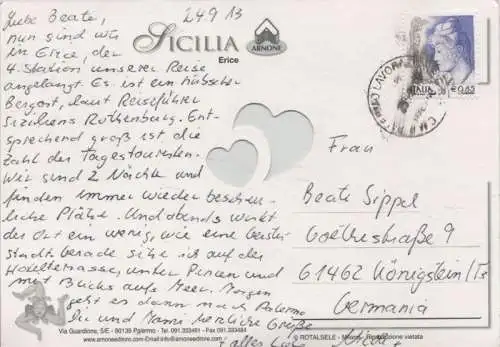 24.9.13
Liebe Beate,
nun sind wir
in Erice, der
4. Station unserer Reise
angelangt. Es ist ein hübscher
Bergort, laut Reiseführer
Siziliens Rothenburg. Ent-
sprechend groß ist die
Zahl der Tagestouristen.
Wir sind 2 Nächte und
finden immer wieder beschau-
liche Plätze. Und abends wirkt
der Ort ein wenig, wie eine Geister-
stadt. Gerade sitze ich auf der
Hotelterrasse, unter Pinien und
mit Blick aufs Meer. Morgen
geht es dann nach Palermo
Dir und Mami herzliche Grüße
+ alles Liebe
SICILIA
Erice
ARNONE
ITALIA
€ 0,85
LAVORAZIONE
Frau
Beate Sippel
Goethestraße 9
61462 Königstein/Ts
Germania
Via Guardione, 5/E - 90139 Palermo - Tel. 091.333461 - Fax 091.333484
www.arnoneeditore.com - Email info@arnoneeditore.com
© ROTALSELE - Milano - Riproduzione vietata